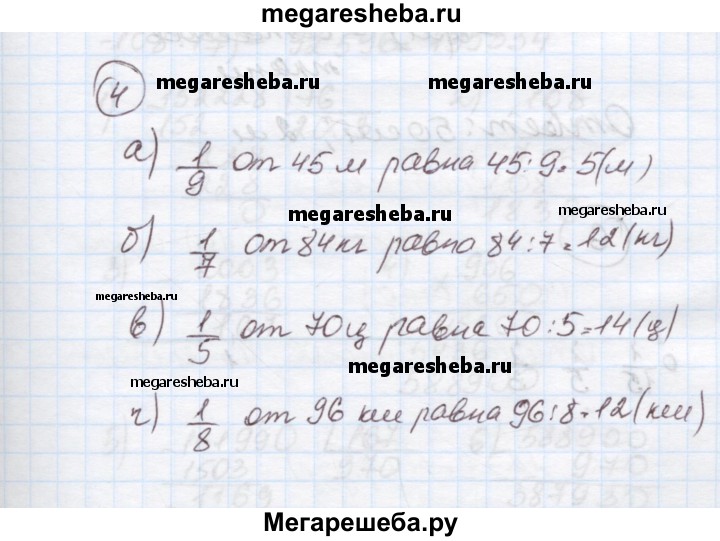 megaresheba.ru
4 megaresheba.ru megaresheba.ru
а) 1/9 от 45 м равна 45:9=5(м)
megaresheba.ru megaresheba.ru
б) 1/7 от 84кг равно 84:7=12(кг)
megaresheba.ru
в) 1/5 от 70ц равна 70:5=14(ц)
megaresheba.ru
megaresheba.ru
г) 1/8 от 96 км равна 96:8=12(км)
Мегарешеба.ру